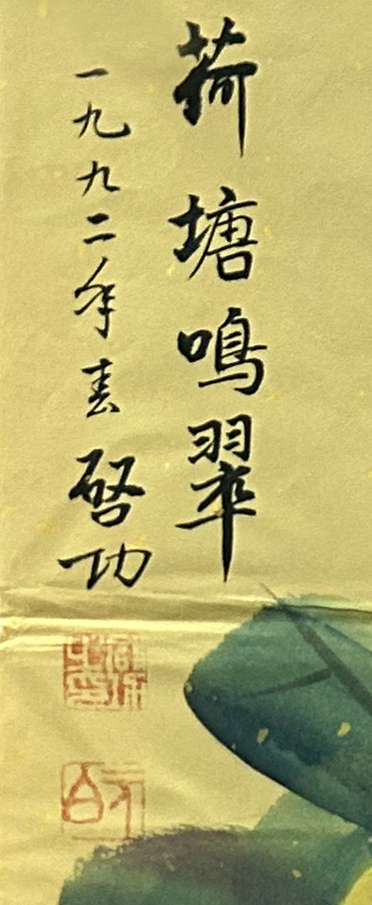 荷塘鳴翠
一九九二年春
啓功
元白